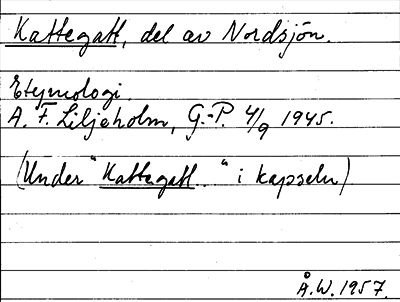 Kattegatt, del av Nordsjön.
Etymologi.
A. F. Liljeholm, G.-P. 4/9 1945.
(Under "Kattegatt.." i kapseln)
Å.W. 1957.